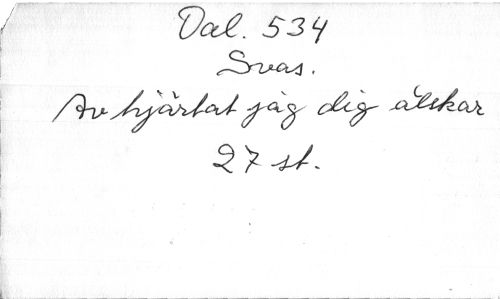 Dal. 534
Svas.
Av hjärtat jag dig älskar
27 st.